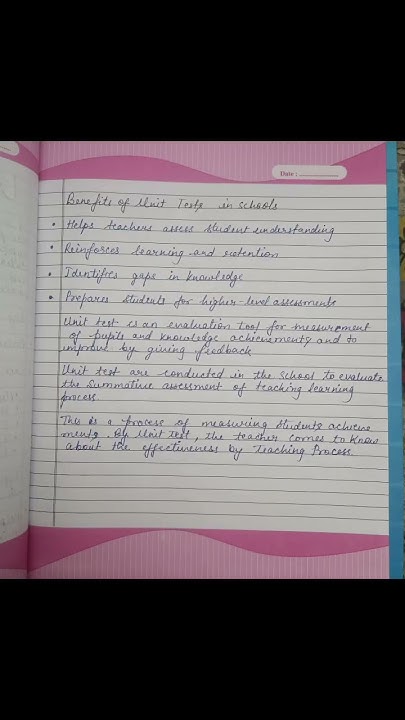 Date :
Benefits of Unit Tests in schools
• Helps teachers assess student understanding
• Reinforces learning and retention
• Identifies gaps in knowledge
• Prepares students for higher-level assessments
Unit test is an evaluation tool for measurement
of pupils and knowledge achievements and to
improve by giving feedback
Unit test are conducted in the school to evaluate
the summative assessment of teaching learning
process.
This is a process of measuring students achieve
ments. By Unit test, the teacher comes to know
about the effectiveness by Teaching Process.